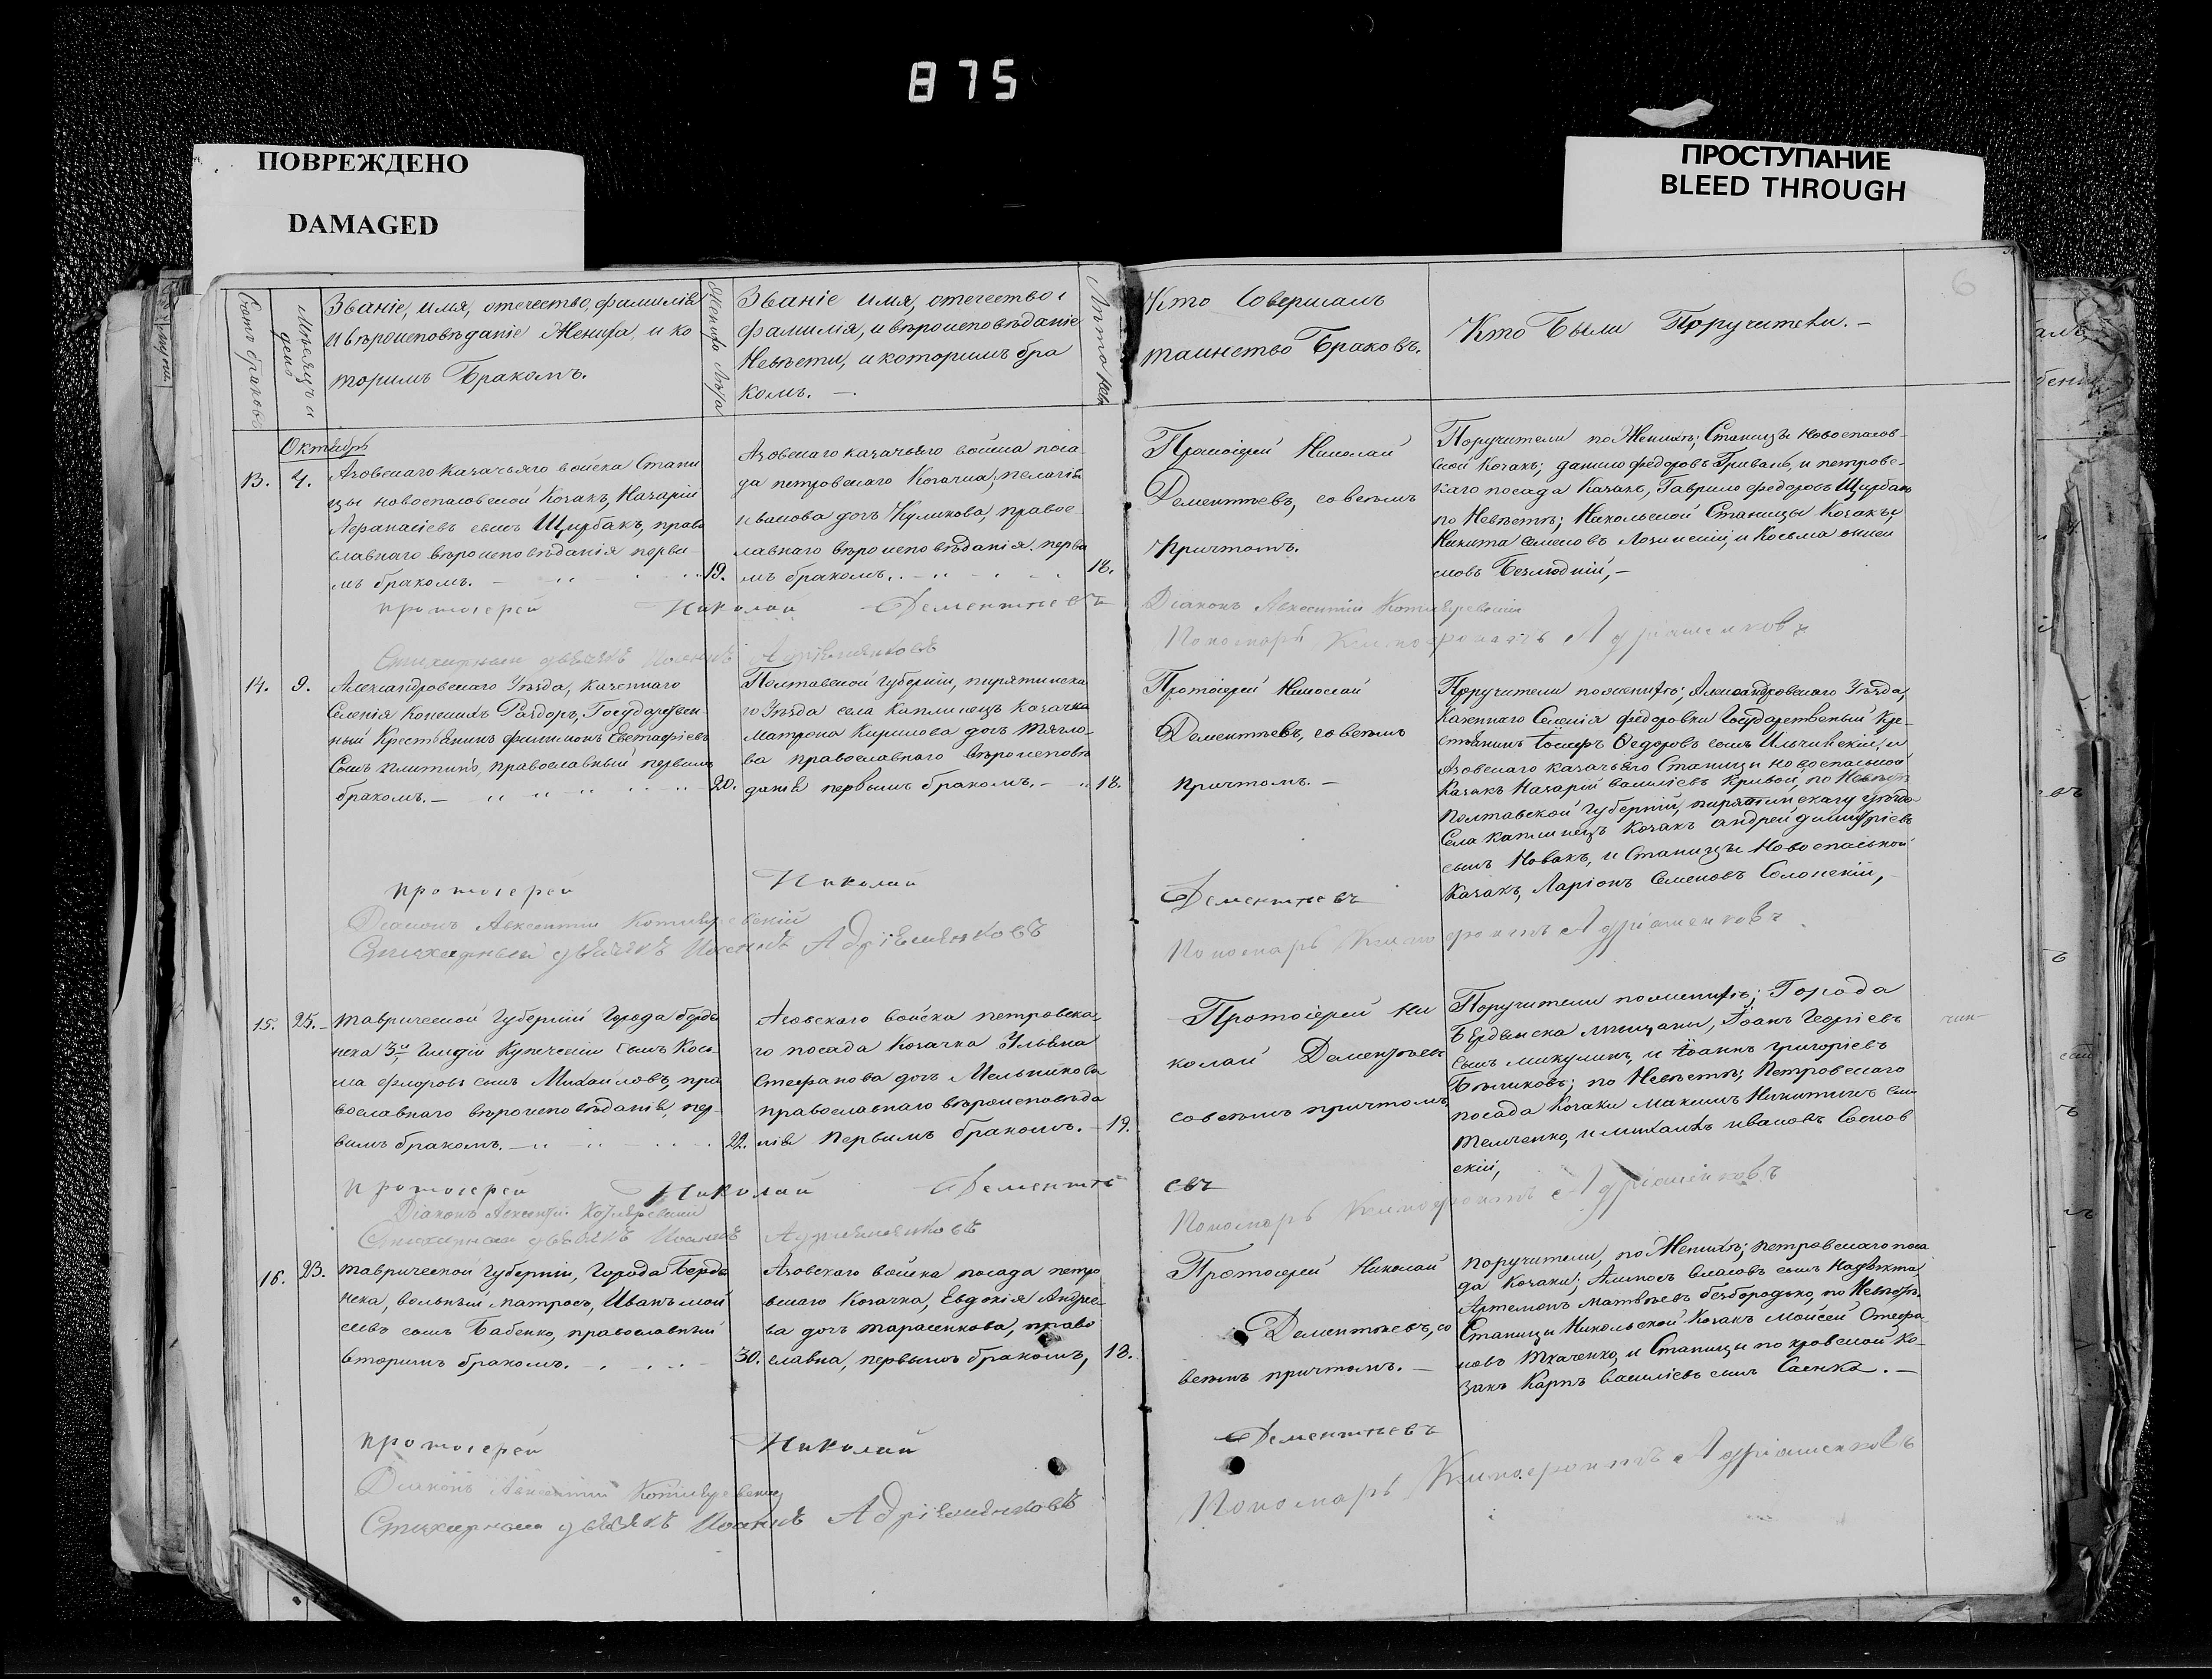 875
ПОВРЕЖДЕНО
DAMAGED
ПРОСТУПАНИЕ
BLEED THROUGH
6
Счетъ браковъ
Мѣсяцъ и
день
Званіе, имя, отечество, фамилія
и вѣроисповѣданіе Жениха, и ко
торимъ Бракомъ.
Жениха Лѣта
Званіе имя, отечество и
фамилія, и вѣроисповѣданіе
Невѣсти, и которимъ бра
комъ. —.
Лѣта
Кто Совершалъ
таинство Браковъ.
Кто Были Поручители. —
Октябрь
13.
4.
Азовскаго казачьяго войска Стани
цы новоспасовской Козакъ, Назарій
сынъ Щирбакъ, право
славнаго вѣроисповѣданія перви-
мъ бракомъ. —
19.
Азовскаго казачьяго войска поса-
да петровскаго Козачка, пелагія
иванова дочь Куликова, правос-
лавнаго вѣроисповѣданія. перви
мъ бракомъ. . —
18.
Протоіерей Николай
Дементьевъ, совсѣмъ
Причтомъ.
Поручители по Женихѣ; Станицы Новоспасов-
ской Козакъ; данило федоровъ Гривань, и петровс-
каго посада Казакъ, Гаврило федоровъ Щирбакъ
по Невѣстѣ; Никольской Станицы Козаки;
Никита Семеновъ Лозинскій, и Косьма
Безлюдній, —
протоіерей Николай Дементьевъ
Діаконъ Авксентій Котляревскій
Пономарь Ксенофонтъ Адріашенковъ
Стихарный дьячекъ Иоаннъ Адріяшенковъ
14.
9.
Александровскаго Уѣзда, казеннаго
Селенія Конскихъ Раздоръ, Государствен-
ный Крестьянинъ филимонъ Евстафіевъ
Сынъ православный первымъ
бракомъ. —
20.
Полтавской Губерніи, пирятинска
го Уѣзда села Каплинецъ Козачка
Матрона Кирилова дочь Тягло-
ва православнаго вѣроисповѣ
данія первымъ бракомъ. —
18.
Протоіерей Николай
Дементьевъ, совсѣмъ
причтомъ. —
Поручители по женихѣ; Александровскаго Уѣзда,
Казеннаго Селенія федоровки Государственый Кре-
стьянинъ Іосифъ Федоровъ сынъ Ильчинскій, и
Азовскаго казачьяго Станици новоспасской
Казакъ Назарій василіевъ Кривой, по Невѣстѣ
Полтавской Губерніи, пирятинскаго уѣзда
Села каплинецъ Козакъ андрей димитріевъ
сынъ Новакъ, и Станицы Новоспаськой
Казакъ, Ларіонъ Семеновъ Солонскій, —
протоіерей Николай Дементьевъ
Діаконъ Авксентій Котляревскій
Стихарный дьячекъ Иоаннъ Адріяшенковъ
Пономарь Ксенофонтъ Адріашенковъ
15.
25.
Таврической Губерніи Города бердя
нска 3й Гильдіи Купеческій сынъ Кось-
ма флоровъ сынъ Михайловъ, пра
вославнаго вѣроисповѣданія, пер-
вимъ бракомъ. —
22.
Азовскаго войска петровска-
го посада Козачка Ульяна
Стефанова дочь Мельникова
православнаго вѣроисповѣда
нія Первымъ бракомъ. —
19.
Протоіерей Ни
колай Дементьевъ
совсѣмъ причтомъ,
Поручители по женихѣ; Города
Бердянска мѣщани, Іоанъ Георгіевъ
Сынъ микулинъ, и Іоаннъ григоріевъ
Бѣликовъ; по Невѣстѣ; Петровскаго
посада Козаки максимъ Никитинъ
Темченко, и михаилъ ивановъ Соснов
скій,
протоіерей Николай Дементьевъ
Діаконъ Авксентій Котляревскій
Пономарь Ксенофонтъ Адріашенковъ
Стихарный дьячекъ Иоаннъ Адріяшенковъ
16.
23.
Таврической Губерніи, Города Бердя
нска, вольный матросъ, Иванъ мой
сеевъ сынъ Бабенко, православный
вторимъ бракомъ. —
30.
Азовскаго войска посада петро
вскаго Козачка, Евдокія Андрее-
ва дочь тарасенкова, право
славна, первымъ бракомъ,
18.
Протоіерей Николай
Дементьевъ, со
всѣмъ причтомъ. —
поручители, по Женихѣ; петровскаго поса
да Козаки; власовъ сынъ
Артемонъ Матвѣевъ безбородько, по Невѣстѣ
Станици Никольской Козакъ Мойсей Стефа
новъ Ткаченко, и Станицы покровской Ко-
закъ Карпъ Василіевъ сынъ Саенко. —
протоіерей Николай Дементьевъ
Діаконъ Авксентій Котляревскій
Стихарный дьячекъ Иоаннъ Адріяшенковъ
Пономарь Ксенофонтъ Адріашенковъ